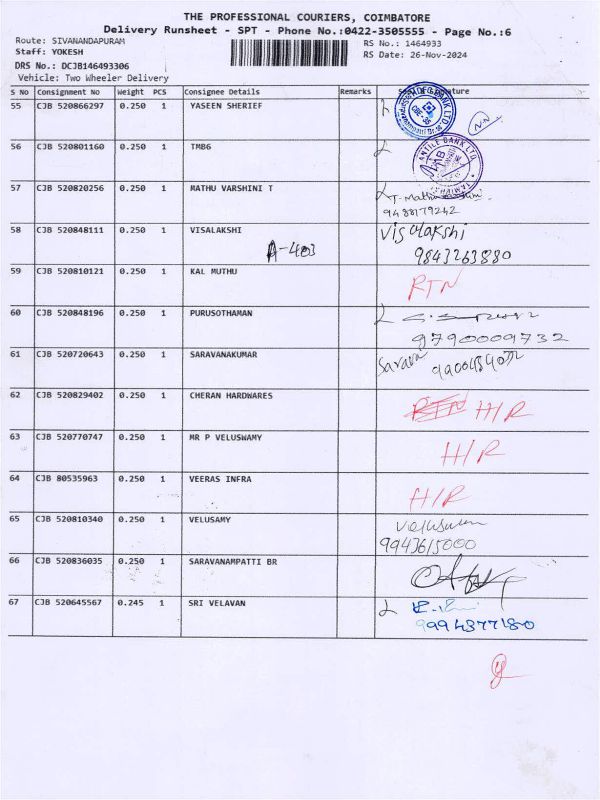 THE PROFESSIONAL COURIERS, COIMBATORE
Delivery Runsheet - SPT - Phone No.:0422-3505555 - Page No.:6
Route: SIVANANDAPURAM
RS No.: 1464933
Staff: YOKESH
RS Date: 26-Nov-2024
DRS No.: DCJB146493306
Vehicle: Two Wheeler Delivery
S No Consignment No Weight PCS Consignee Details Remarks
55 CJB 520866297 0.250 1 YASEEN SHERIEF
56 CJB 520801160 0.250 1 TMB6
57 CJB 520820256 0.250 1 MATHU VARSHINI T
9488179242
58 CJB 520848111 0.250 1 VISALAKSHI Visalakshi
A-403 9843263880
59 CJB 520810121 0.250 1 KAL MUTHU RTN
60 CJB 520848196 0.250 1 PURUSOTHAMAN
9790009732
61 CJB 520720643 0.250 1 SARAVANAKUMAR
62 CJB 520829402 0.250 1 CHERAN HARDWARES RTN H/R
63 CJB 520770747 0.250 1 MR P VELUSWAMY H/R
64 CJB 80535963 0.250 1 VEERAS INFRA H/R
65 CJB 520810340 0.250 1 VELUSAMY
9943615000
66 CJB 520836035 0.250 1 SARAVANAMPATTI BR
67 CJB 520645567 0.245 1 SRI VELAVAN
9994377180